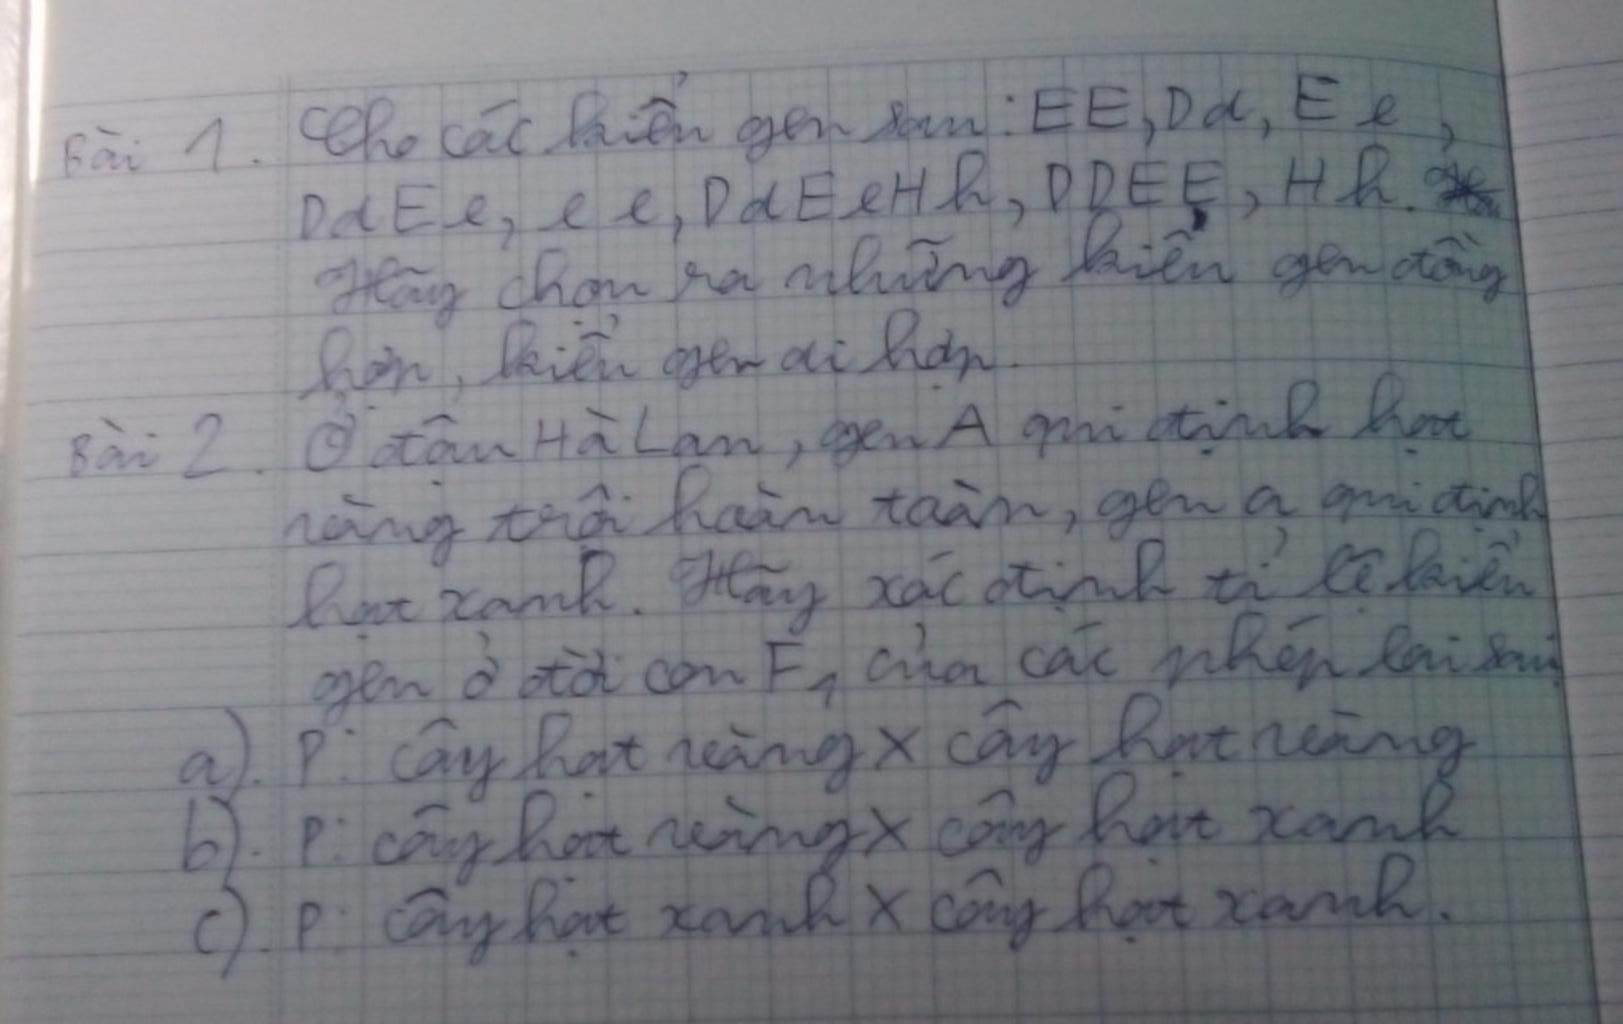 Bài 1. Cho các kiểu gen sau: EE, Dd, Ee,
DdEe, ee, DdEeHh, DDEE, Hh.
Hãy chọn ra những kiểu gen đồng
hợp, kiểu gen dị hợp.
Bài 2. Ở đậu Hà Lan, gen A qui định hạt
vàng trội hoàn toàn, gen a qui định
hạt xanh. Hãy xác định tỉ lệ kiểu
gen ở đời con F1 của các phép lai sau
a). P: cây hạt vàng x cây hạt vàng
b). P: cây hạt vàng x cây hạt xanh
c). P: cây hạt xanh x cây hạt xanh.